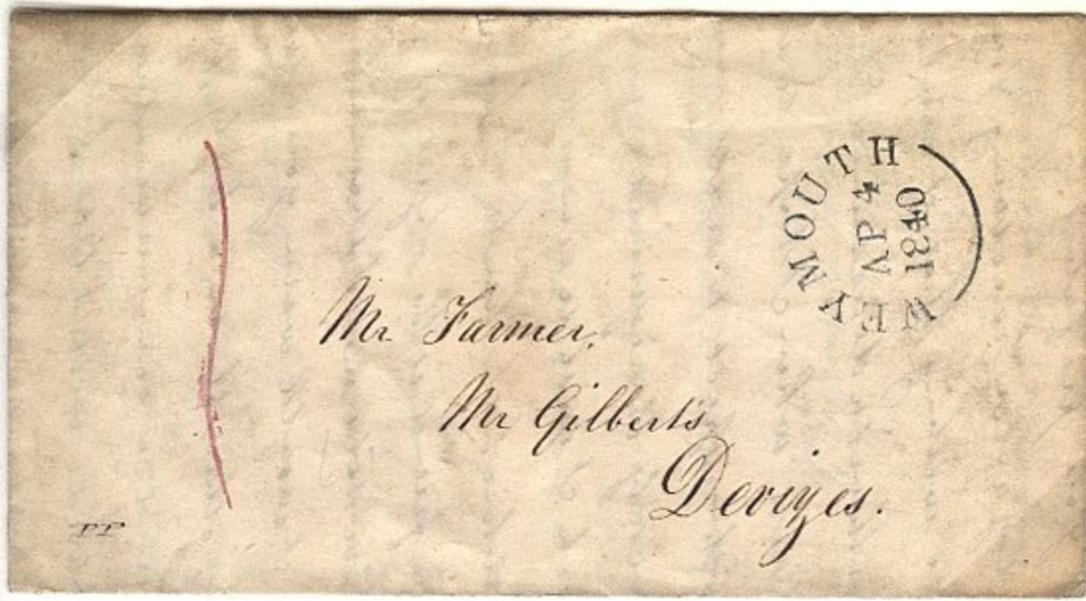 WEYMOUTH
AP 4
1840
Mr Farmer,
Mr Gilberts
Devizes.
PP